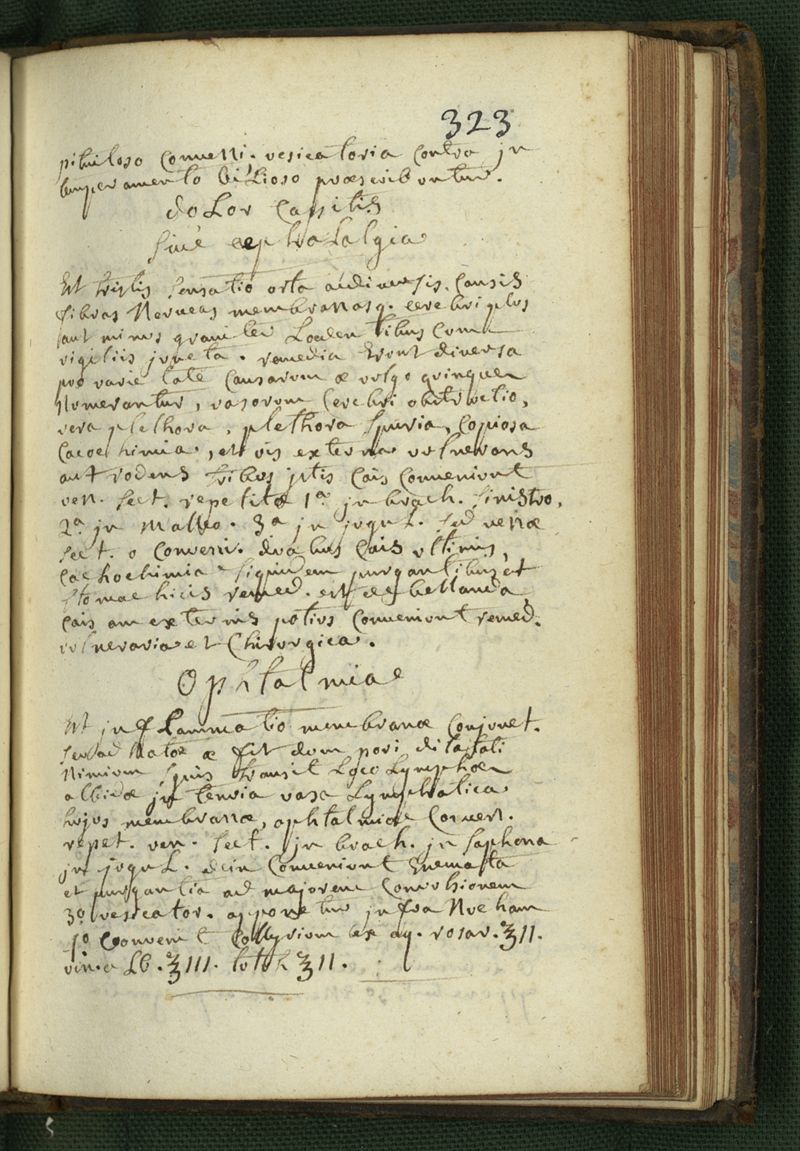 323
pituitoso Conveni. vesicatoria Contra jn
temperamento biLioso præscribuntur.
doLor Capitis
sive cephalalgia
Est tristis sensatio orta a diversis Causis
fibras Nerveas membranasq. cerebri plus
aut minus graviter Lædentibus Cum
vigiliis juncta. remedia erunt diversa
pro varietate Causarum æ vulgo quinque
Numerantur, vasorum Cerebri obstructio,
vera plethora, plethora spuria, Copiosa
Cacochimia, et vis externa vulnerans
aut rodens tribus jstis Cais Conveniunt
ven. sect. repetitæ 1ª jn brach. sinistro,
2ª jn Malleo. 3ª jn jugul. sed venæ
sect. o Conveni. duabus Cais ultimis,
Cachochimia siquidem purgantibus et
stomachicis remed. est debellanda
Cais am externis potius Conveniunt remed.
vulneraria et Chirurgica.
Ophtalmiae
Est jnfLammatio membranæ Conjunct.
seu ad natæ æ fit dum pori dilatati
Nimium sguis transit Loco Lymphæ
albidæ jn tenuia vasa Lymphatica
hujus membranæ, ophtalmiæ Conven.
repet. ven. sect. jn brach. jn saphena
jn juguL. dein Conveniunt Enemata
et purgantia ad majorem Convulsionem
3º vesicator. apponetur jnfra Nucham
4º Convenit Collyrium ex aq. rosar. ℥II.
vin. a Lb. ℥III. tutih ℥II.